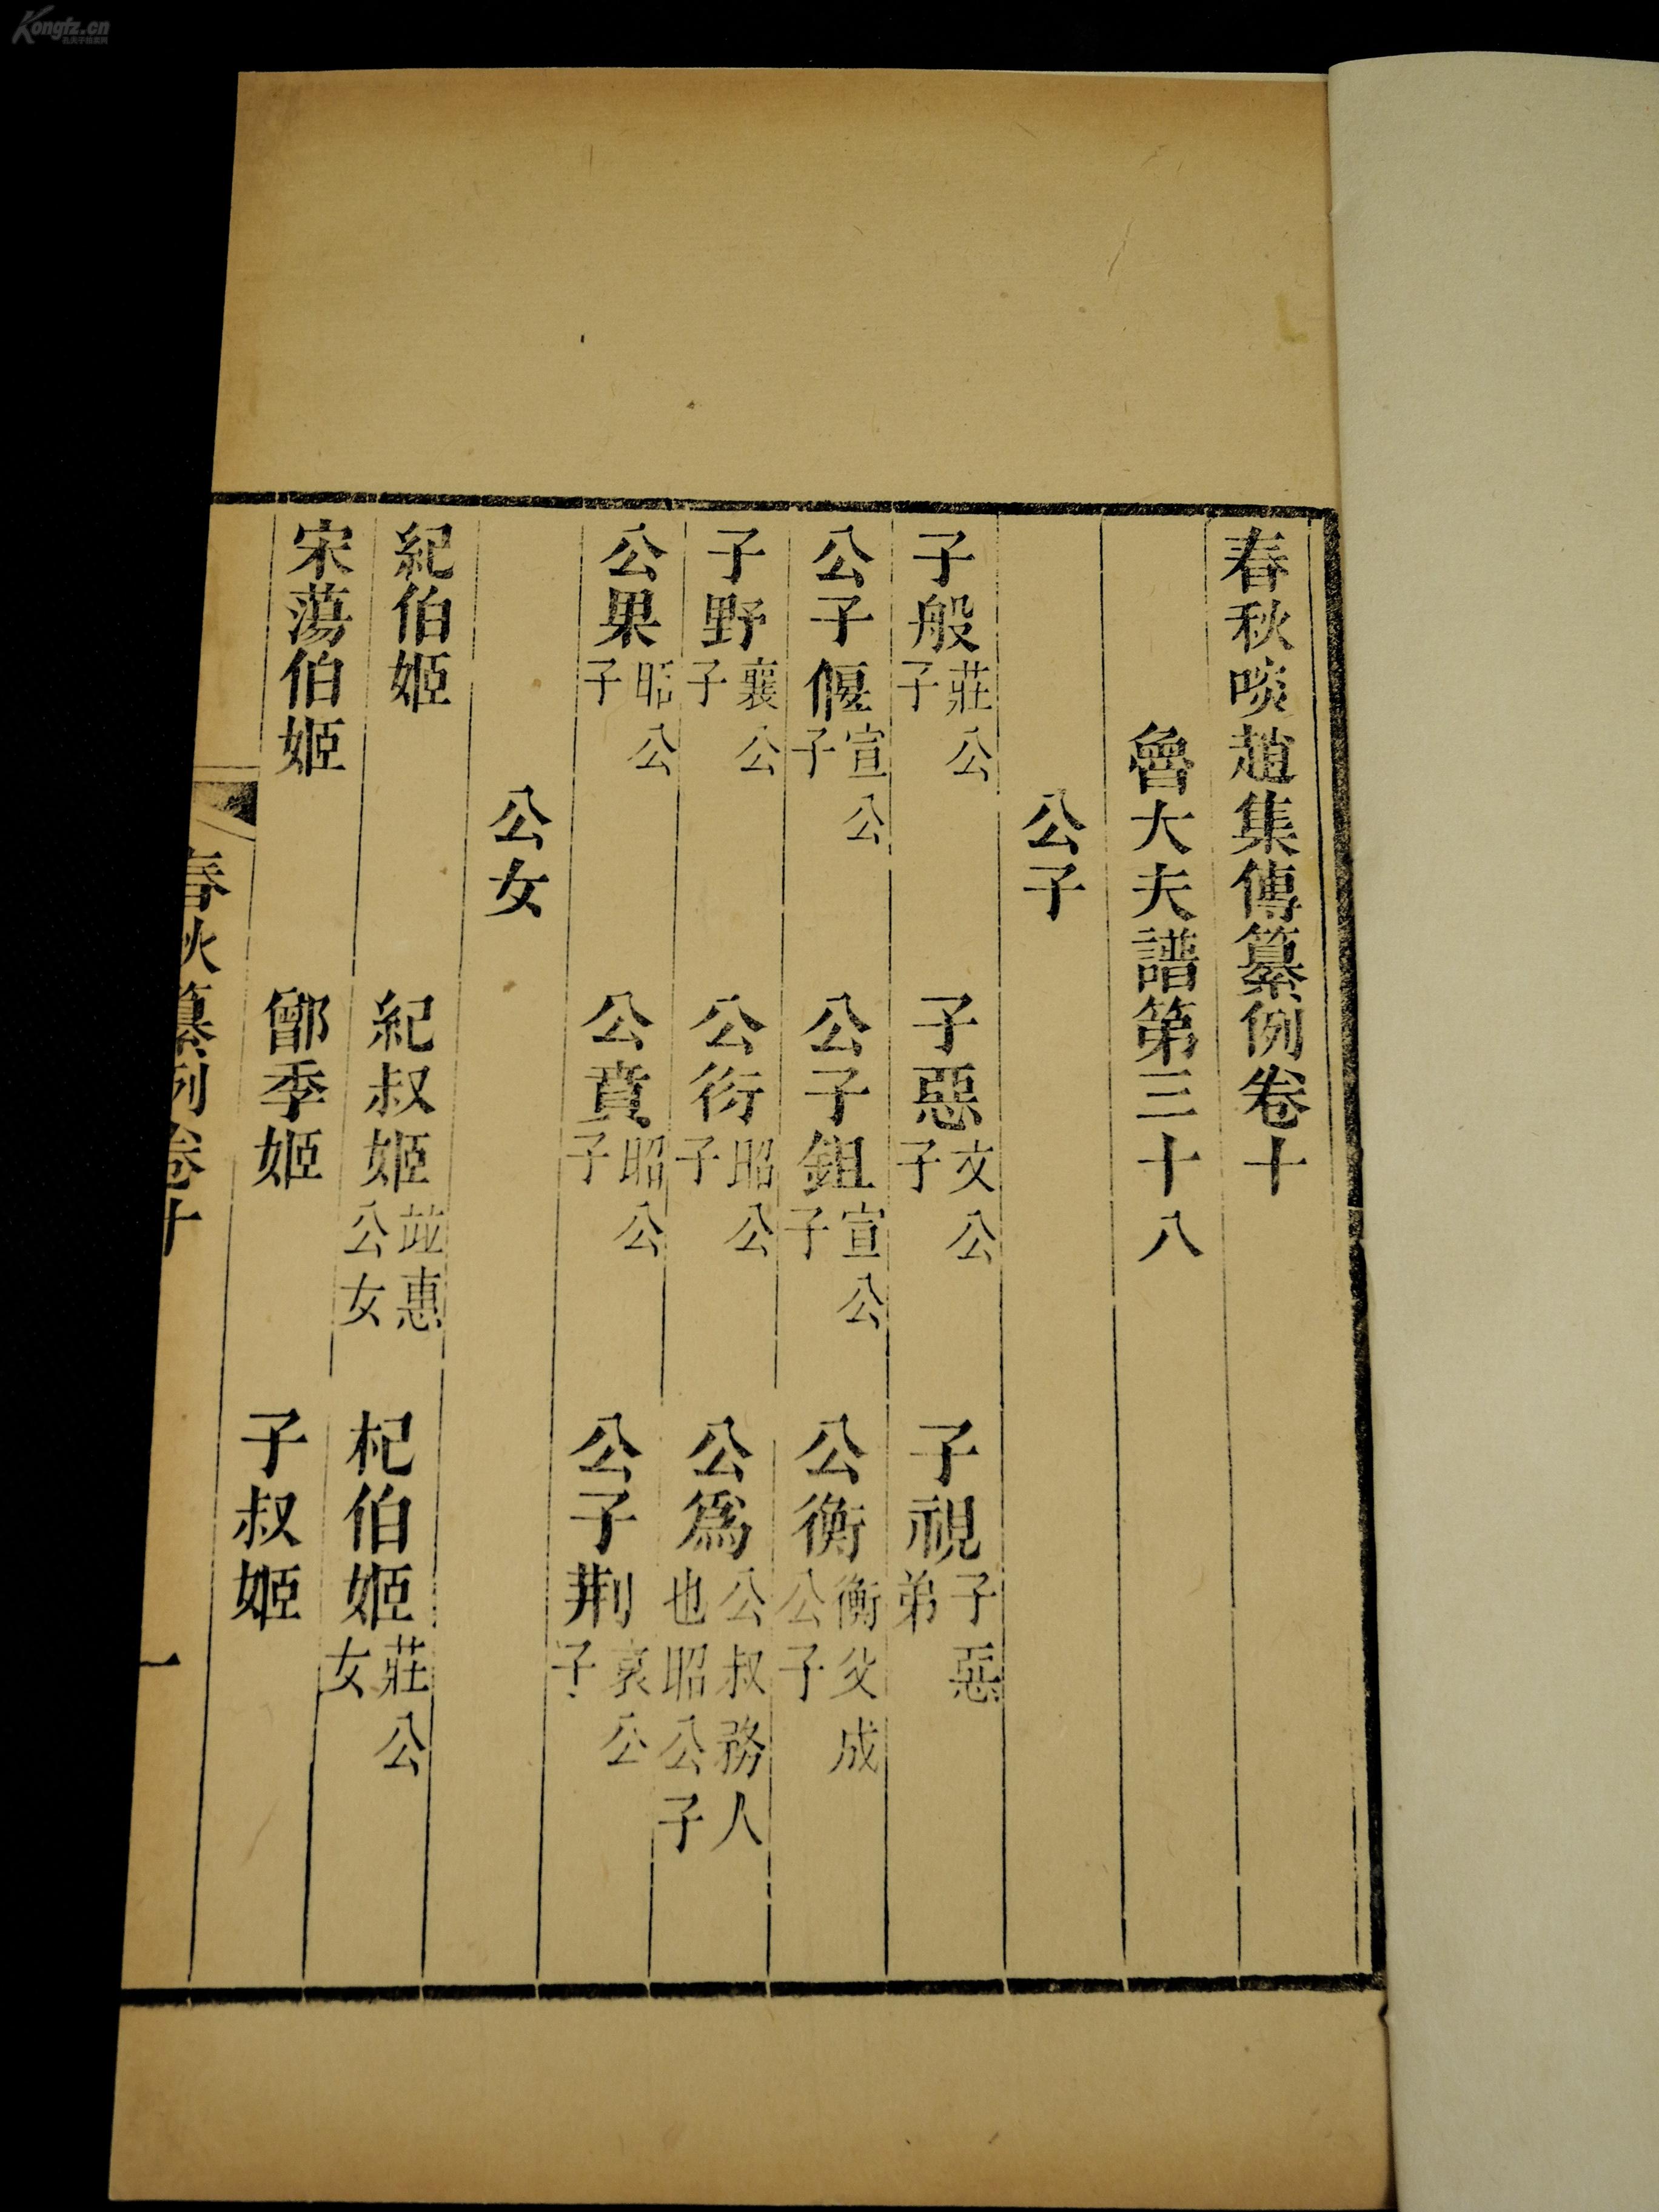 春秋啖趙集傳纂例卷十
魯大夫譜第三十八
公子
子般莊公子 子惡文公子 子視子惡弟
公子偃宣公子 公子鉏宣公子 公衡衡父成公子
子野襄公子 公衍昭公子 公爲公叔務人也昭公子
公果昭公子 公賁昭公子 公子荆哀公子
公女
紀伯姬 紀叔姬並惠公女 杞伯姬莊公女
宋蕩伯姬 鄫季姬 子叔姬
春秋纂例卷十 一
Kongfz.cn